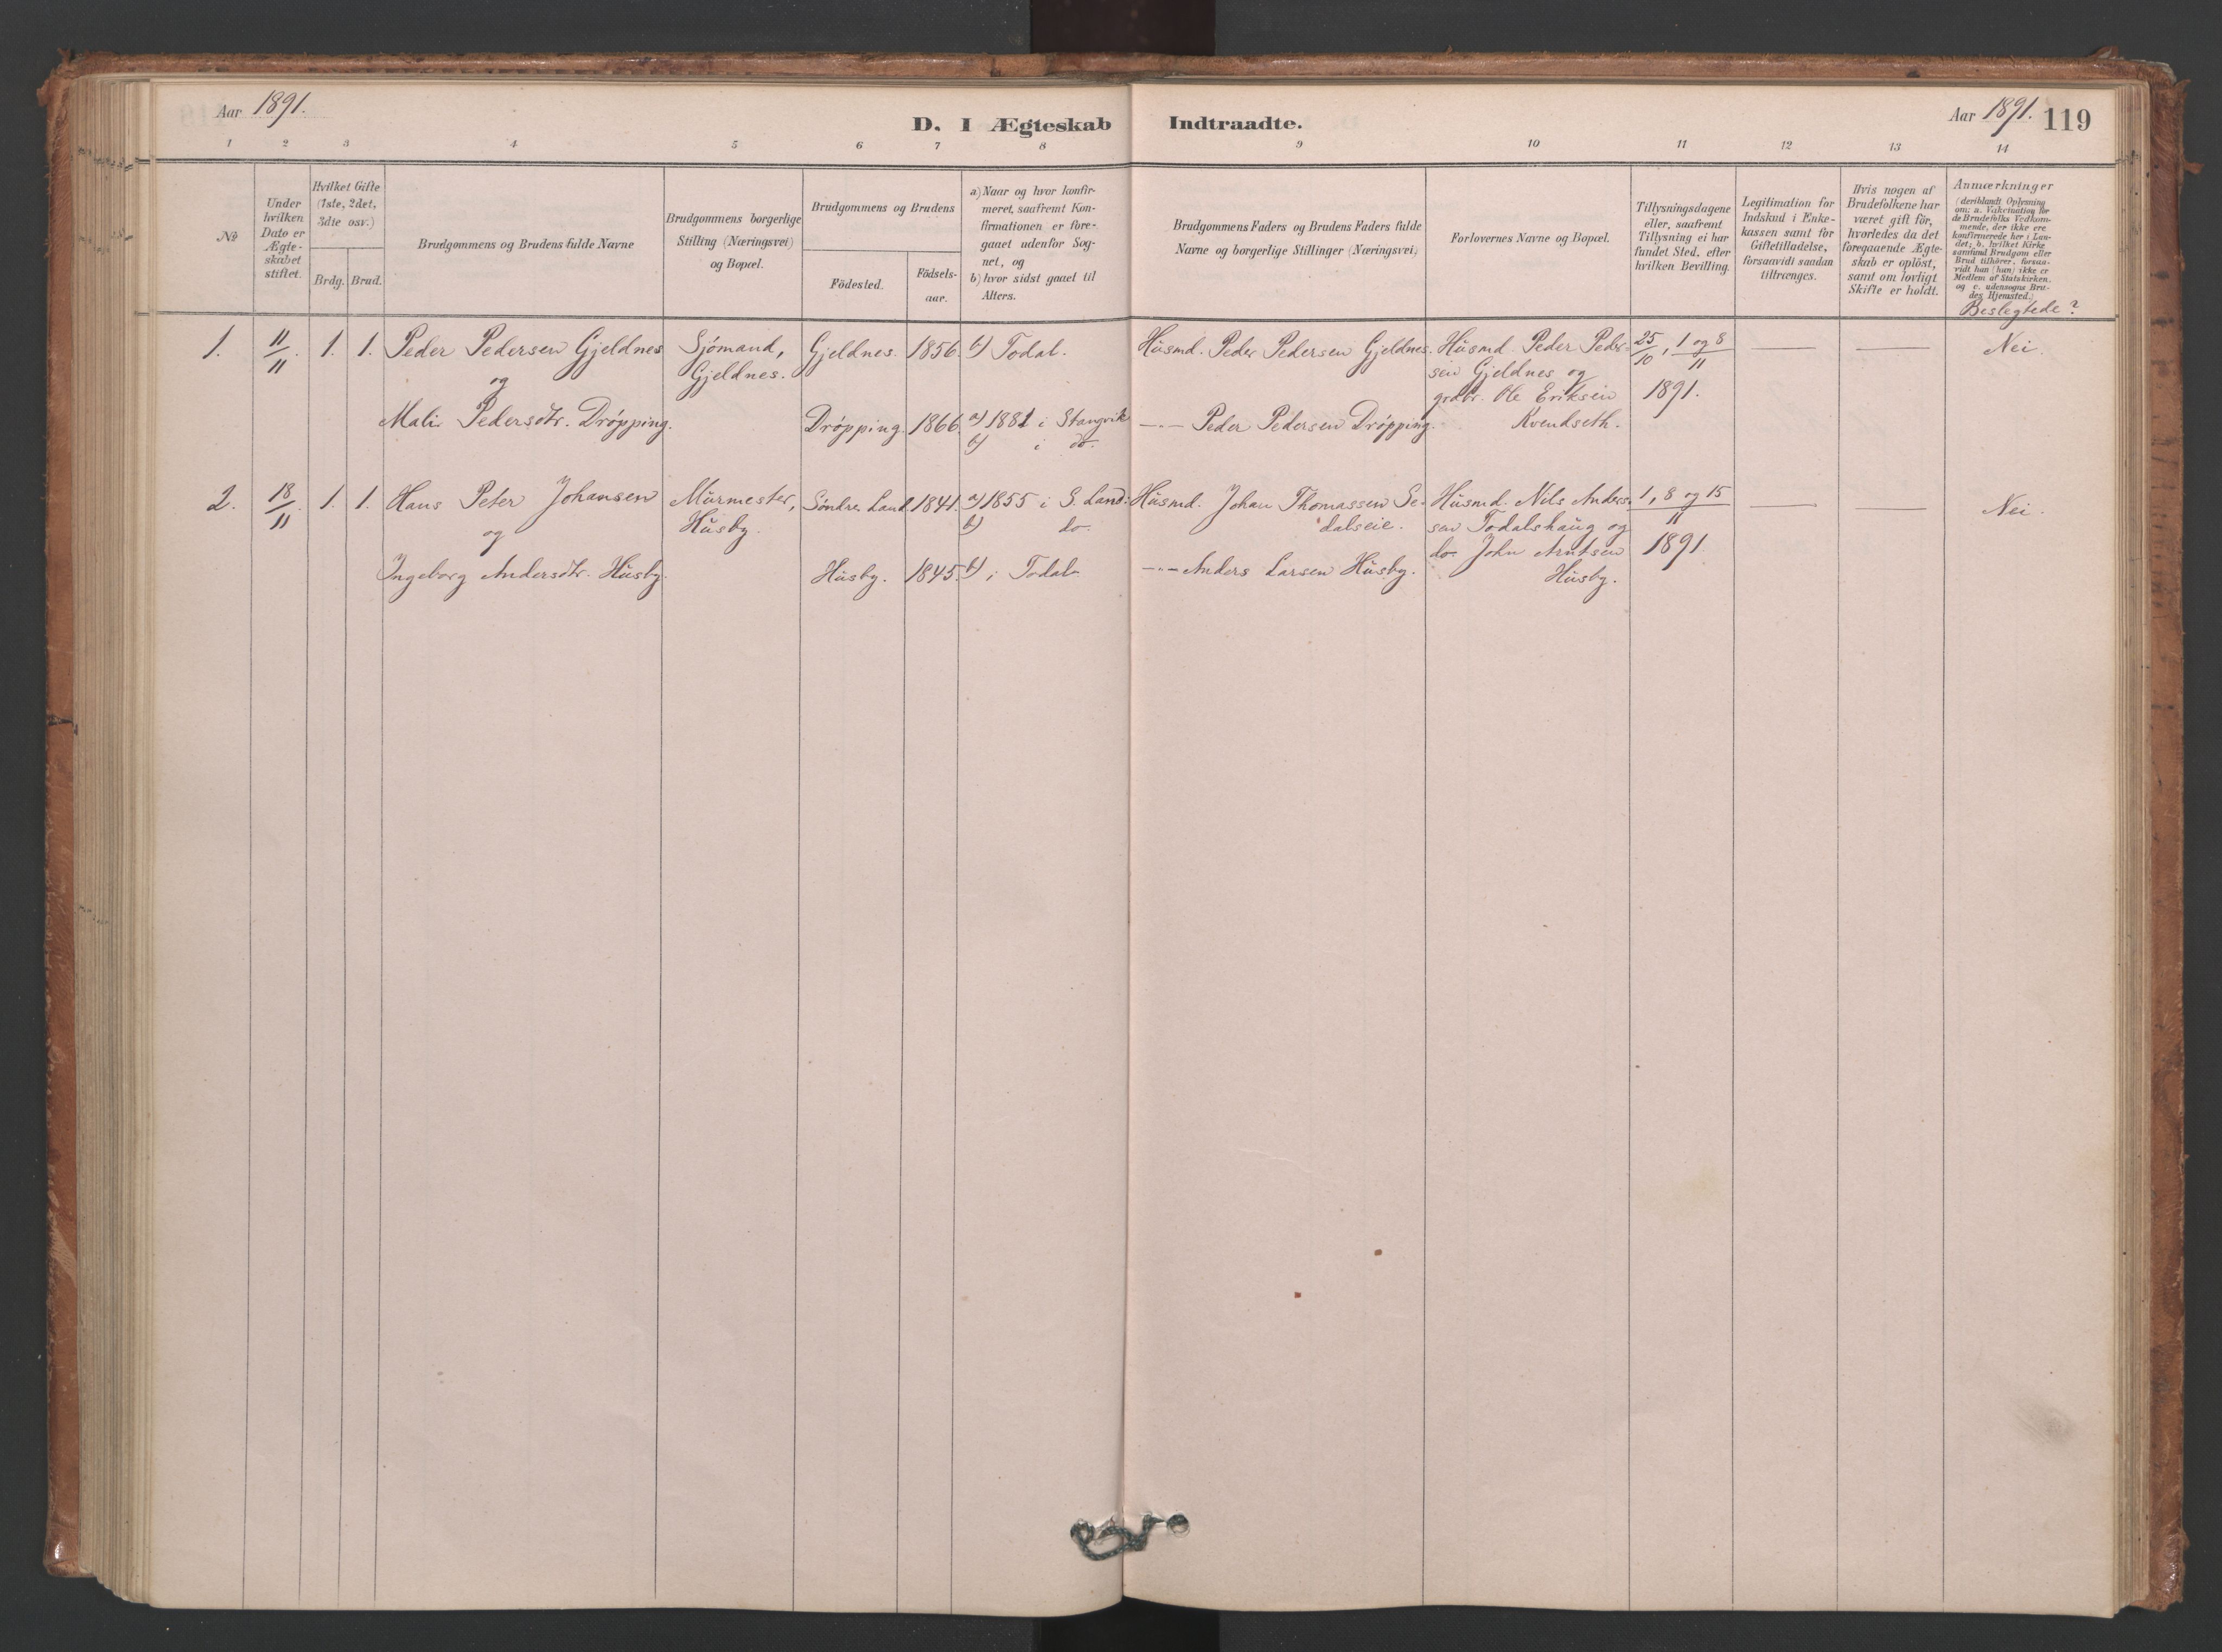 Aar 1891.
D. I Ægteskab Indtraadte.
Aar 1891. 119
1 2 3 4 5 6 7 8 9 10 11 12 13 14
No
Under
hvilken
Dato er
Ægte-
skabet
stiftet.
Hvilket Gifte
(1ste, 2det,
3die osv.)
Brdg. Brud.
Brudgommens og Brudens fulde Navne
Brudgommens borgerlige
Stilling (Næringsvei)
og Bopæl.
Brudgommens og Brudens
Födested.
Födsels-
aar.
a) Naar og hvor konfir-
meret, saafremt Kon-
firmationen er fore-
gaaet udenfor Sog-
net, og
b) hvor sidst gaaet til
Alters.
Brudgommens Faders og Brudens Faders fulde
Navne og borgerlige Stillinger (Næringsvei)
Forlovernes Navne og Bopæl.
Tillysningsdagene
eller, saafremt
Tillysning ei har
fundet Sted, efter
hvilken Bevilling.
Legitimation for
Indskud i Enke-
kassen samt for
Giftetilladelse,
forsaavidt saadan
tiltrænges.
Hvis nogen af
Brudefolkene har
været gift för,
hvorledes da det
foregaaende Ægte-
skab er oplöst,
samt om lovligt
Skifte er holdt.
Anmærkninger
(deriblandt Oplysning
om: a. Vakcination for
de Brudefolks Vedkom-
mende, der ikke ere
konfirmerede her i Lan-
det; b. hvilket Kirke
samfund Brudgom eller
Brud tilhörer, forsaa-
vidt han (hun) ikke er
Medlem af Statskirken.
og c. udensogns Bru-
des Hjemsted.)
Beslegtede?
1. 11/11. 1. 1. Peder Pedersen Gjeldnes Sjömand, Gjeldnes. 1856. b) Todal. Husmd. Peder Pedersen Gjeldnes. Husmd. Peder Peder- 25/10, 1 og 8/11 — — Nei.
og Gjeldnes. sen Gjeldnes og
grdbr. Ole Eriksen 1891.
Mali Pedersdtr. Dröpping. Dröpping. 1866. a) 1881 i Stangvik —"— Peder Pedersen Dröpping. Kvendseth.
b) i do.
2. 18/11. 1. 1. Hans Peter Johansen Murmester, Söndre Land 1841. a) 1855 i S. Land. Husmd. Johan Thomassen Se- Husmd. Nils Anders- 1, 8 og 15/11 — — Nei.
og Husby. b) do. dalseie. sen Todalshaug og
do. John Arntsen 1891.
Ingeborg Andersdtr. Husby. Husby. 1845. b) i Todal. —"— Anders Larsen Husby. Husby.